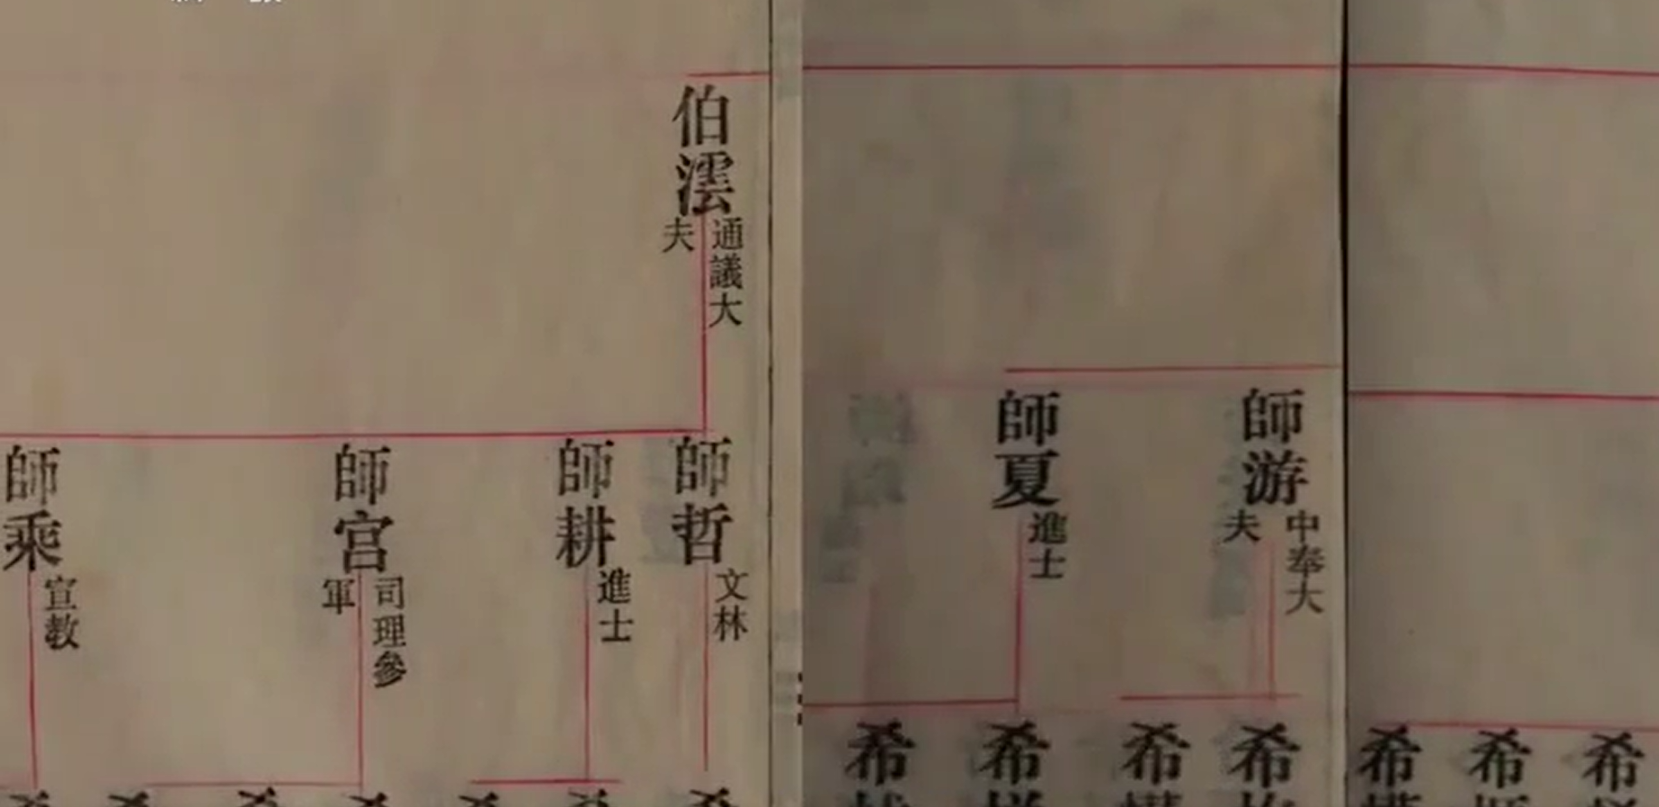 伯澐
通議大
夫
師哲
文林
師耕
進士
師宫
司理參
軍
師乘
宣教
師游
中奉大
夫
師夏
進士
希
希
希
希
希
希
希